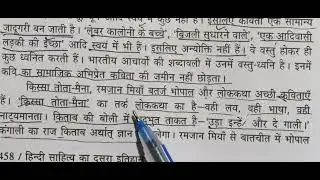 जादूगरी बन जाती है। 'लेबर कालोनी के बच्चे', 'बिजली सुधारने वाले', 'एक आदिवासी
लड़की की इच्छा' आदि स्वयं में भी हैं। इसलिए अन्योक्ति नहीं हैं। वे वस्तु होकर ही
कुछ ध्वनित करती हैं। भारतीय आचार्यों की शब्दावली में उनमें वस्तु-ध्वनि है। इनमें
कवि का सामाजिक अभिप्रेत कविता की जमीन नहीं छोड़ता।
'किस्सा तोता-मैना', रमजान मियाँ बतर्ज भोपाल और लोककथा अच्छी कविताएँ
हैं। 'किस्सा तोता-मैना' का तर्क लोककथा का है—वही लय, वही भाषा, वही
नाट्यमानता। किताब की बोली में अद्भुत ताकत है—'उड़ा इन्हें' और दे गाली।'
कंगाली का राज किताब अर्थात् ज्ञान खोलेगा। रमजान मियाँ से बातचीत में भोपाल
458 / हिन्दी साहित्य का दूसरा इतिहास